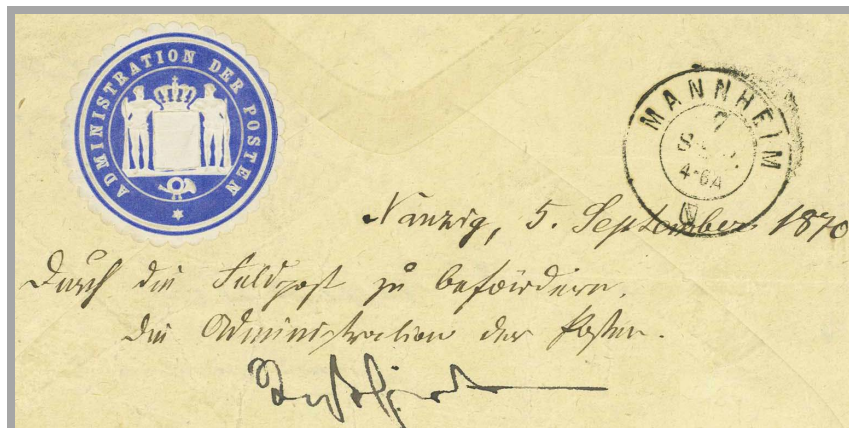 ADMINISTRATION DER POSTEN
MANNHEIM
7
SEP.
4-6A
Nanzig, 5. September 1870
Durch die Feldpost zu befördern.
Die Administration der Posten.